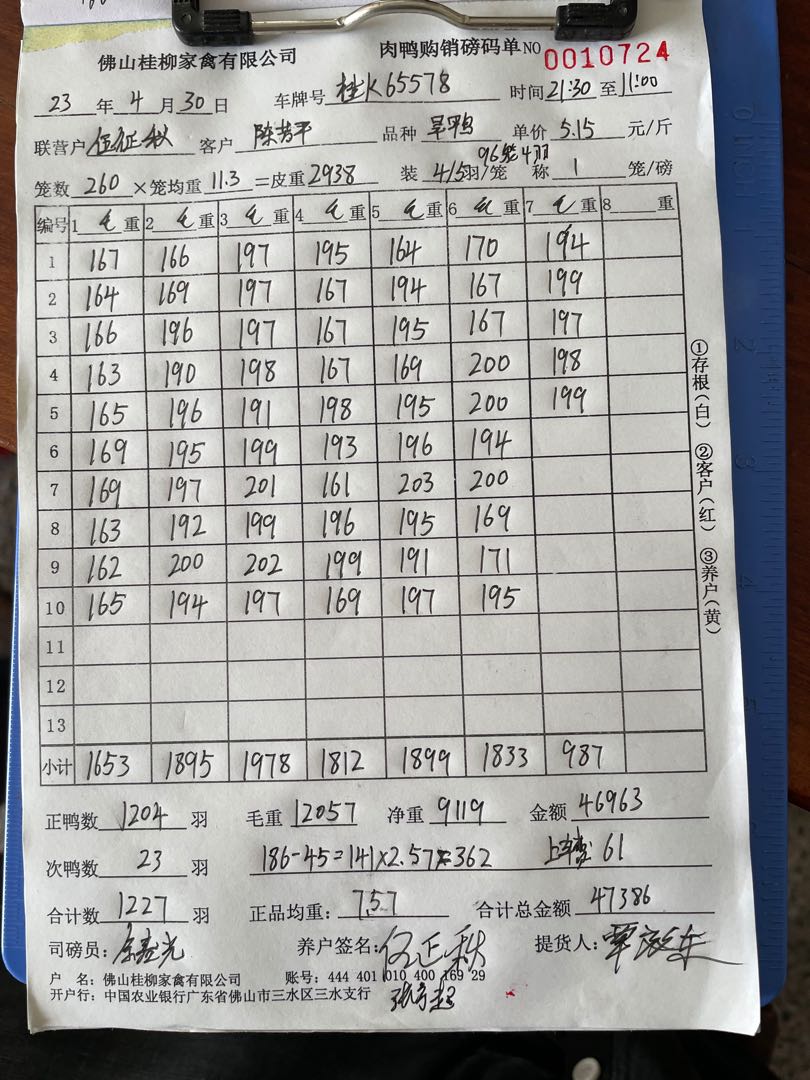 佛山桂柳家禽有限公司 肉鸭购销磅码单 NO 0010724
23 年 4 月 30 日 车牌号 桂K65578 时间 21:30 至 11:00
联营户 伍征秋 客户 陈芳平 品种 旱鸭 单价 5.15 元/斤
96笼4羽
笼数 260 ×笼均重 11.3 =皮重 2938 装 4/5 羽/笼 称 1 笼/磅
编号 1 毛 重 2 毛 重 3 毛 重 4 毛 重 5 毛 重 6 毛 重 7 毛 重 8 重
1 167 166 197 195 164 170 194
2 164 169 197 167 194 167 199
3 166 196 197 167 195 167 197
4 163 190 198 167 169 200 198
5 165 196 191 198 195 200 199
6 169 195 199 193 196 194
7 169 197 201 161 203 200
8 163 192 199 196 195 169
9 162 200 202 199 191 171
10 165 194 197 169 197 195
11
12
13
小计 1653 1895 1978 1812 1899 1833 987
正鸭数 1204 羽 毛重 12057 净重 9119 金额 46963
次鸭数 23 羽 186-45=141×2.57=362 上车 61
合计数 1227 羽 正品均重: 7.57 合计总金额 47386
司磅员: 养户签名: 伍正秋 提货人:
户 名: 佛山桂柳家禽有限公司 账号: 444 401 010 400 169 29
开户行: 中国农业银行广东省佛山市三水区三水支行
①存根(白) ②客户(红) ③养户(黄)